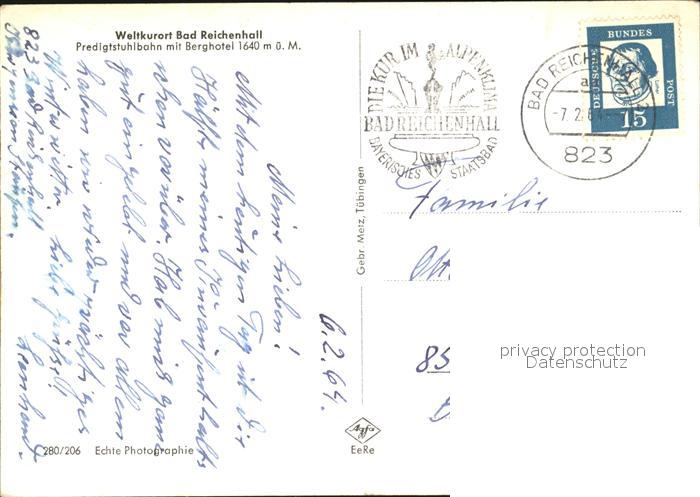 Weltkurort Bad Reichenhall
Predigtstuhlbahn mit Berghotel 1640 m ü. M.
6.2.64.
Meine Lieben!
Mit dem heutigen Tag ist die
Hälfte meines
schon vorüber. Hab mich ganz
gut eingelebt und vor allem
haben wir wieder prächtiges
Winterwetter. Liebe Grüße!
823 Bad Reichenhall
280/206 Echte Photographie
Gebr. Metz, Tübingen
Agfa
EeRe
DIE KUR IM ALPENKLIMA
BAD REICHENHALL
BAYERISCHES STAATSBAD
BAD REICHENHALL
-7.2.64
823
DEUTSCHE BUNDES POST
15
Familie
85
privacy protection
Datenschutz